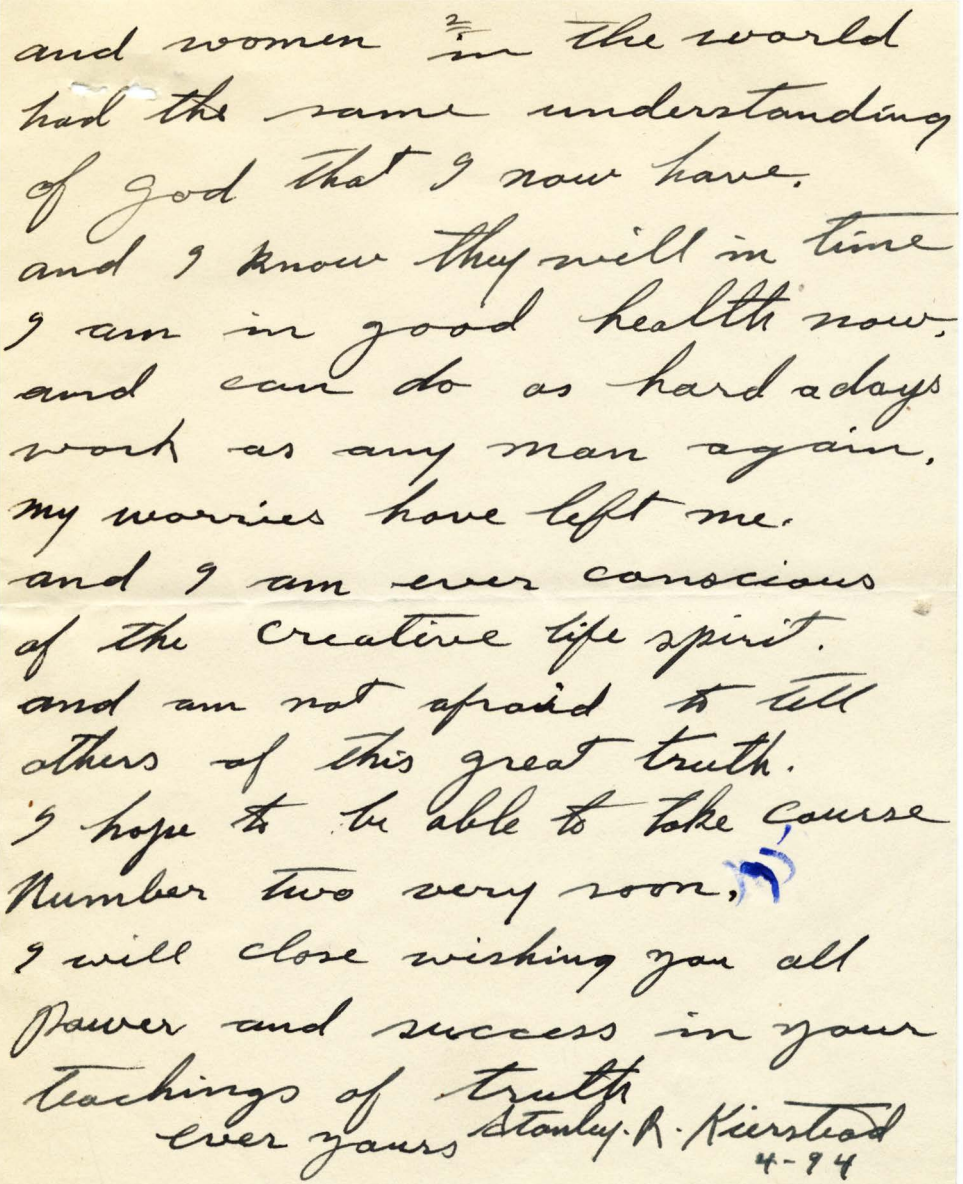 2
and women in the world
had the same understanding
of God that I now have.
and I know they will in time
I am in good health now.
and can do as hard a days
work as any man again.
my worries have left me.
and I am ever conscious
of the creative life spirit.
and am not afraid to tell
others of this great truth.
I hope to be able to take course
Number two very soon.
I will close wishing you all
power and success in your
teachings of truth
ever yours Stanley. R. Kierstead
4-94